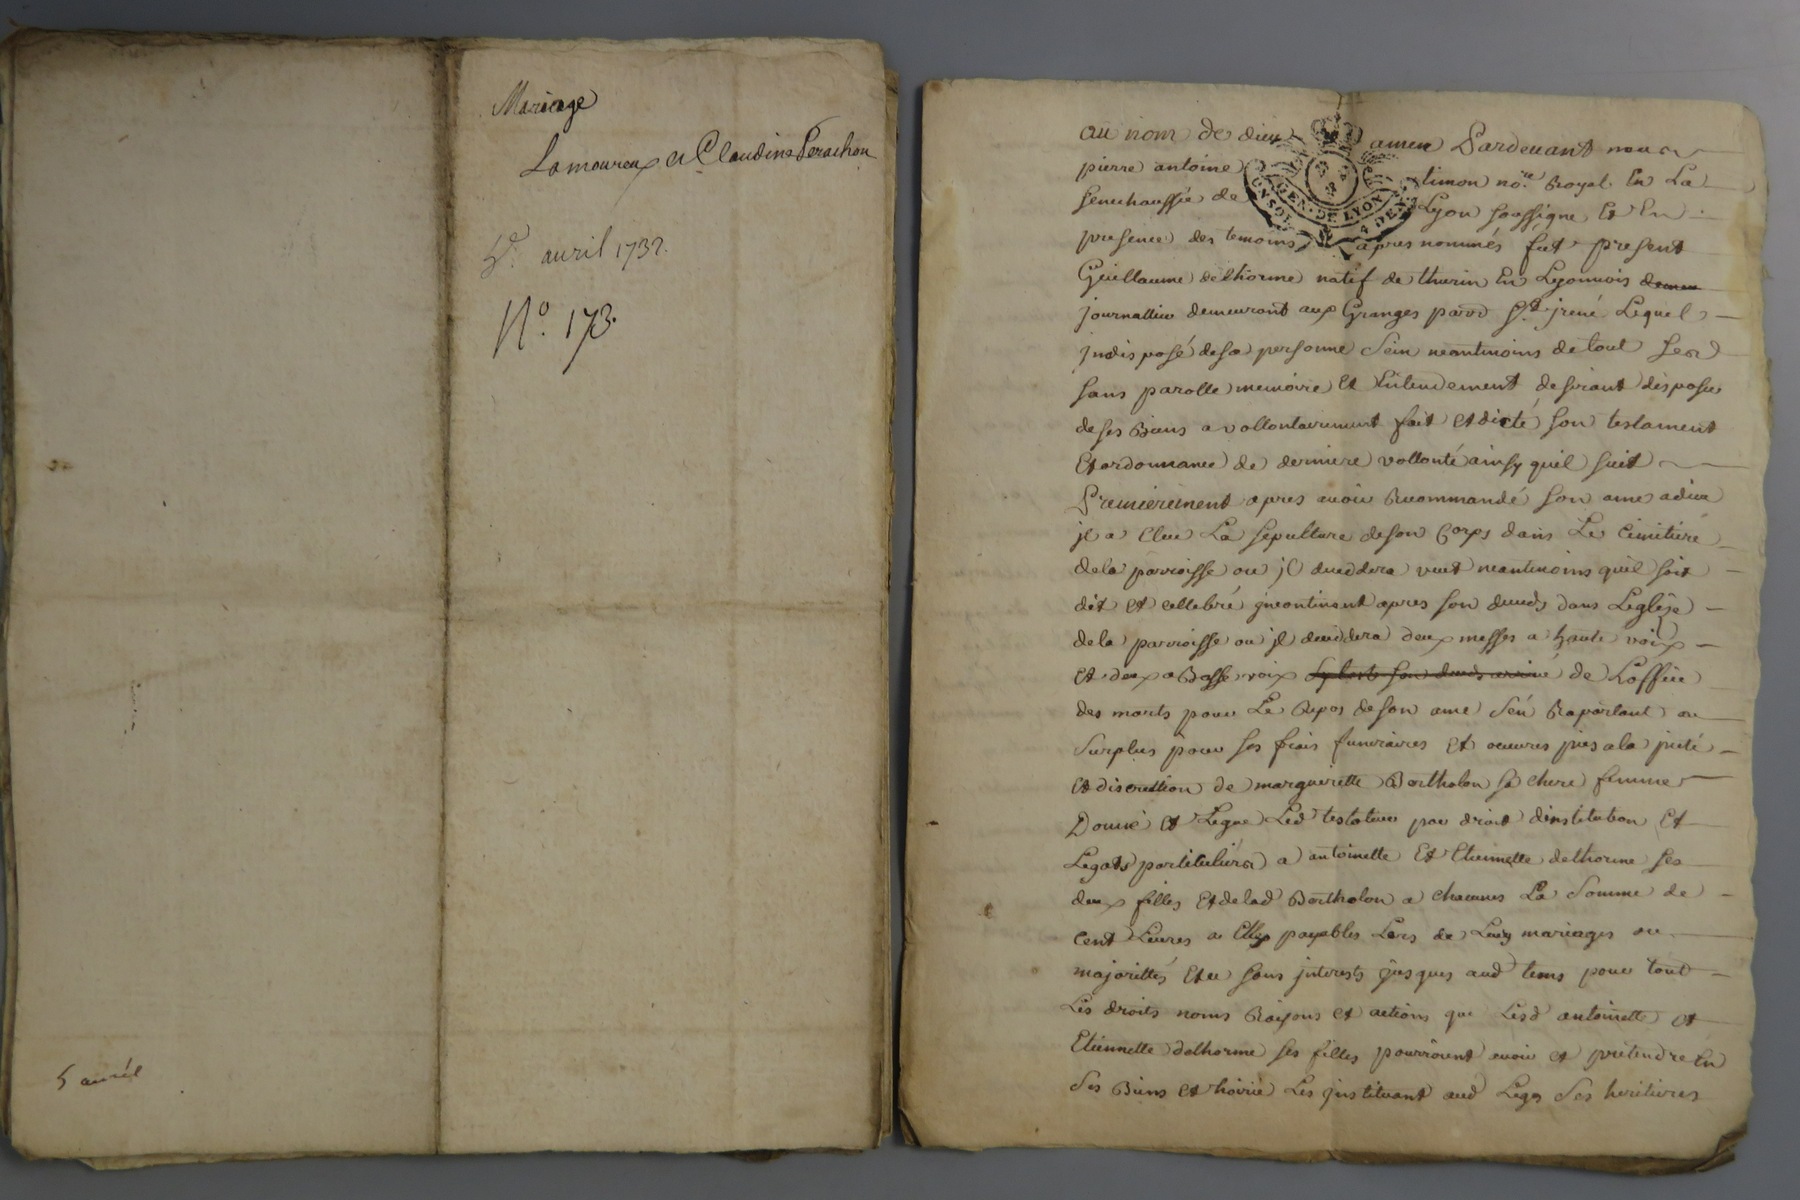 Mariage
Lamoureux et Claudine Perachon
5e. avril 1732.
No. 173.
5 avril
au nom de dieu amen Pardevant nous
pierre antoine timon no.re Royal En La
senechaussée de Lyon soussigne Et En
presence des temoins apres nommés fut present
Guillaume delhorme natif de thurin En Lyonnois
journallier demeurant aux Granges parr St jrené Lequel
jndisposé de sa personne sain neantmoins de tout ses
sans parolle memoire Et Entendement desirant disposer
de ses Biens a vollontairement fait Et dicté son testament
Et ordonnance de derniere vollonté ainsy quil suit
Premierement apres avoir Recommandé son ame a dieu
jl a Elue La sepulture de son Corps dans Le Cimitiere
de la parroisse ou jl deceddera veut neantmoins quil soit
dit et cellebré jncontinent apres son deceds dans Leglise
de la parroisse ou jl deceddera deux messes a haute voix
et deux a Basse voix de Loffice
des morts pour Le Repos de son ame s'en Raportant au
surplus pour ses frais funeraires et oeuvres pies a la pieté
et discrettion de margueritte Bertholon sa chere femme
Donne et Legue Led testateur par droit dinstitution Et
Legats particuliers a antoinette Et Etiennette delhorme ses
deux filles Et de lad Bertholon a chacunes La somme de
Cent Livres a Elles payables Lors de Leurs mariages ou
majorittés Et ce sans jnterests jusques aud tems pour tout
Les droits noms Raisons et actions que Lesd antoinette et
Etiennette delhorme ses filles pourroient avoir et pretendre En
ses Biens et hoirie Les jnstituant aud Legs ses heritieres